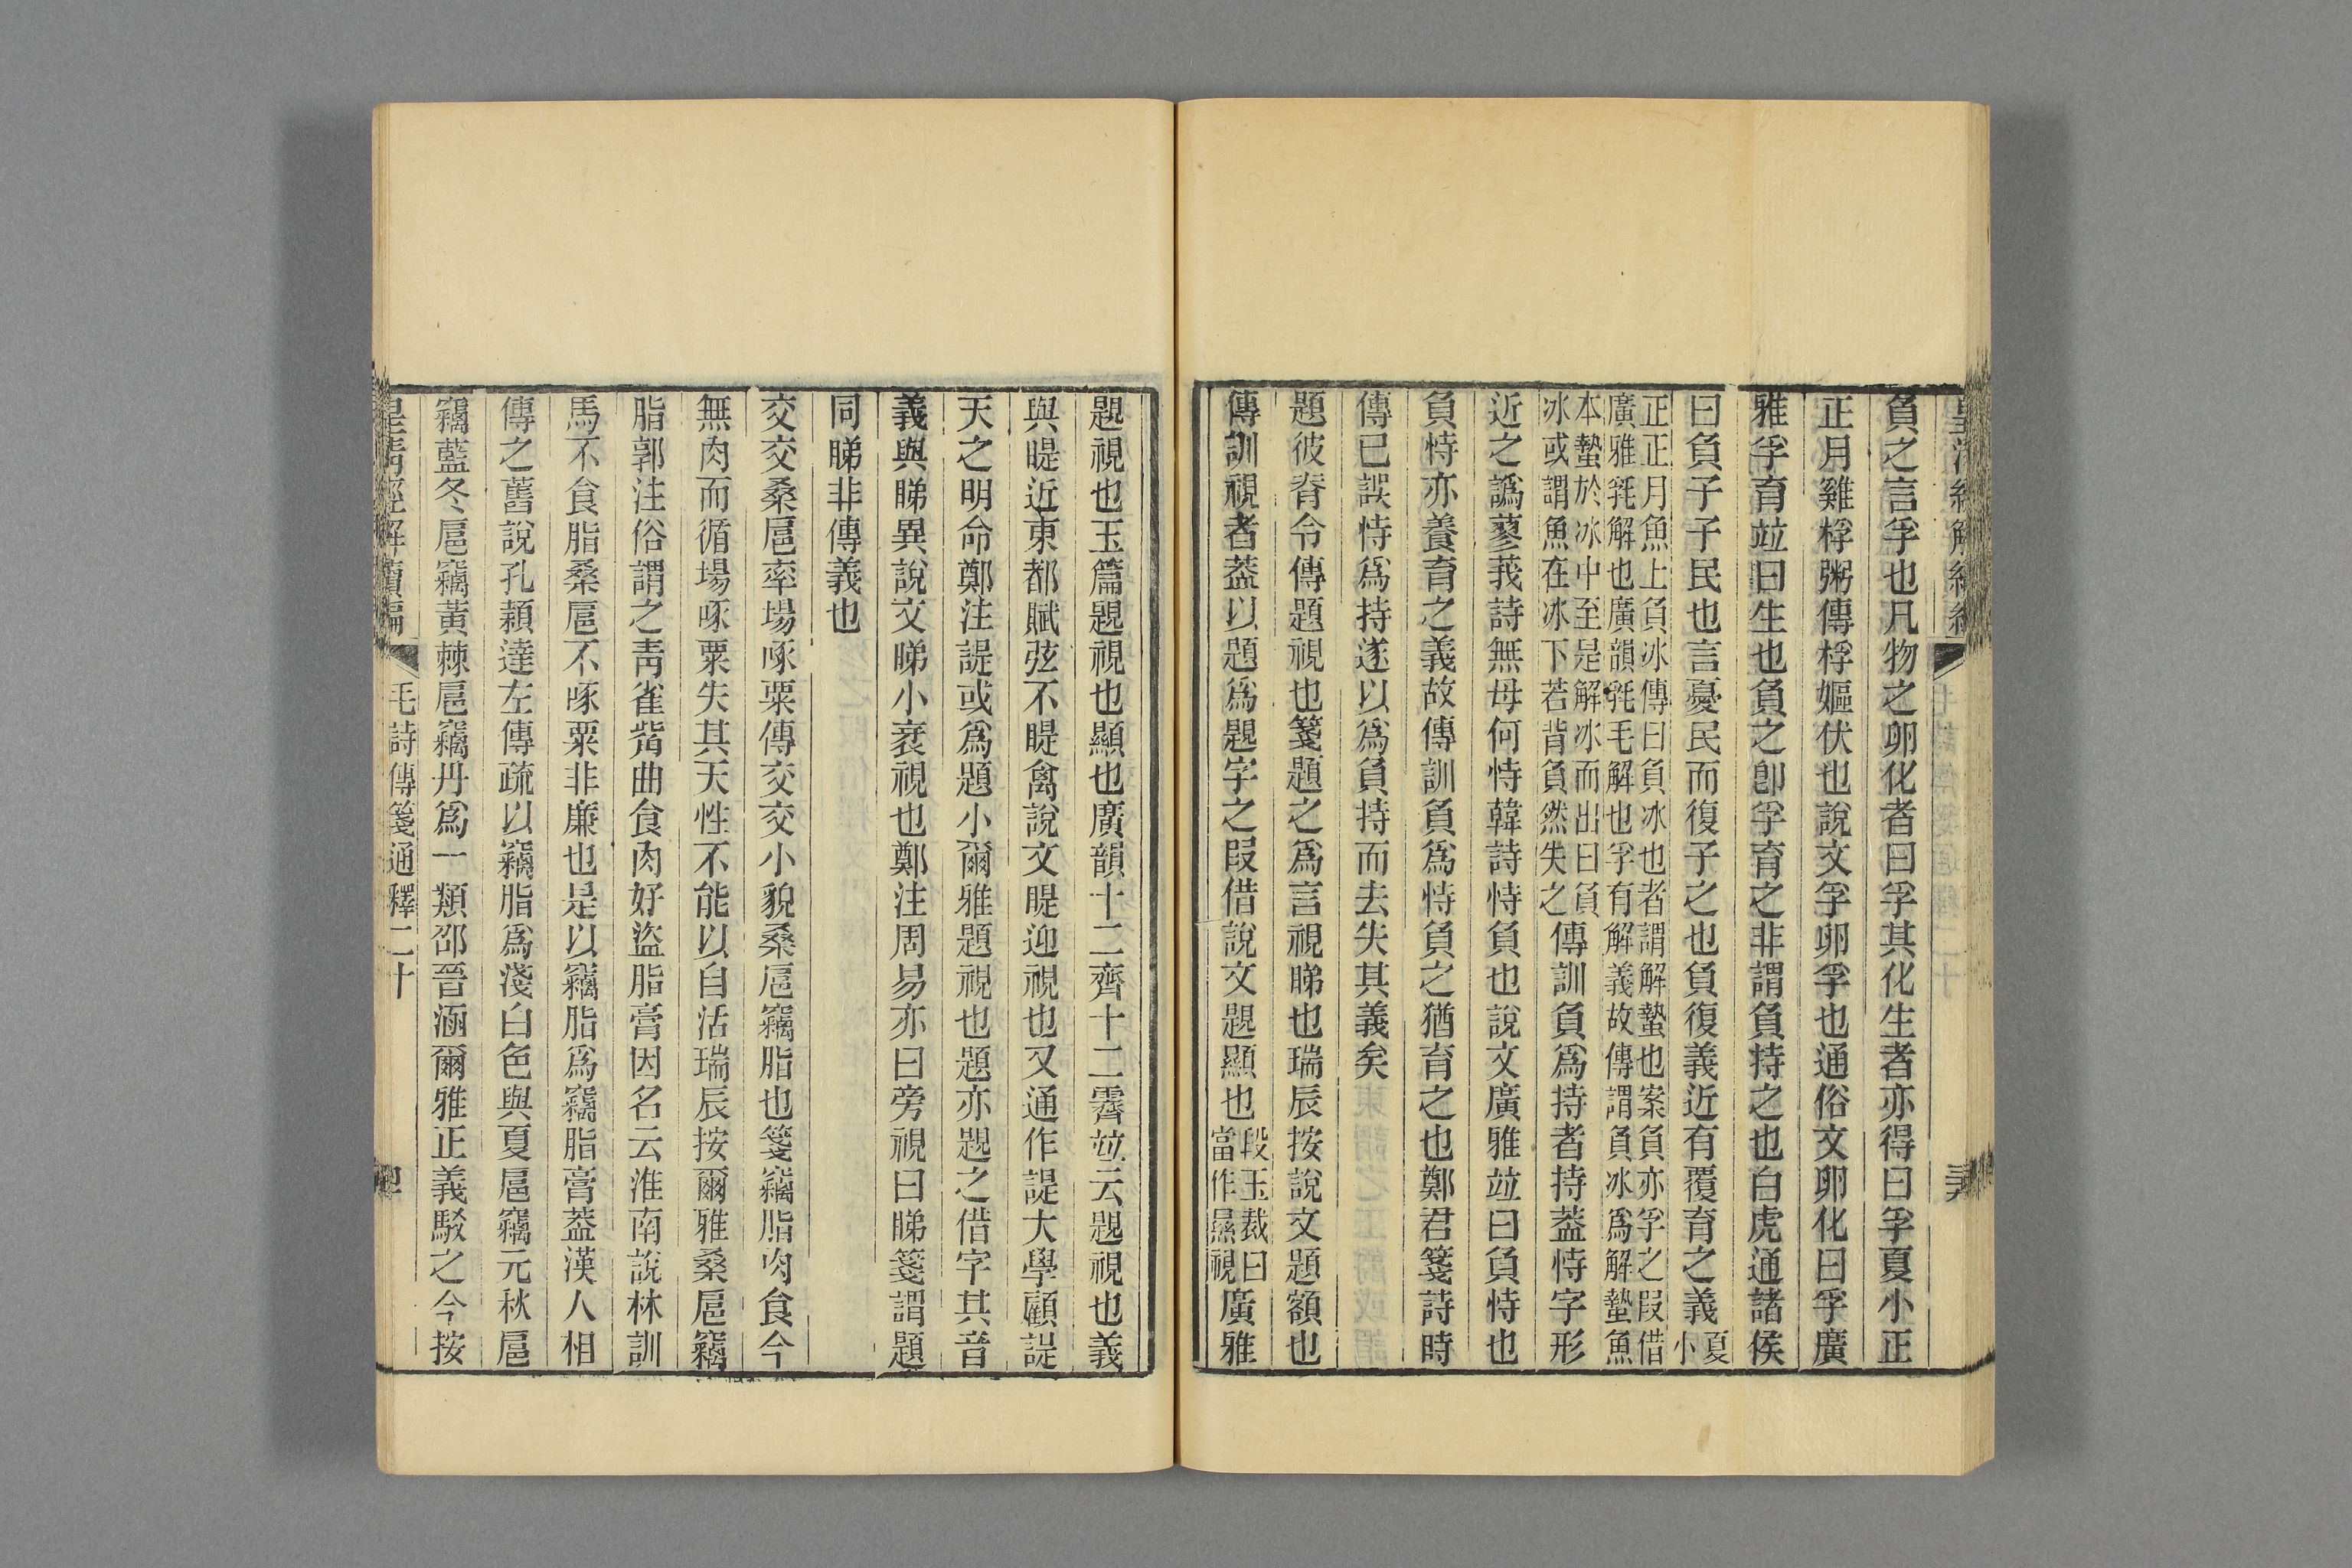 負之言孚也凡物之卵化者曰孚其化生者亦得曰孚夏小正
正月雞桴粥傳桴嫗伏也說文孚卵孚也通俗文卵化曰孚廣
雅孚育竝曰生也負之卽孚育之非謂負持之也白虎通諸侯
曰負子子民也言憂民而復子之也負復義近有覆育之義夏小
正正月魚上負冰傳曰負冰也者謂解蟄也案負亦孚之叚借
廣雅毨解也廣韻毨毛解也孚有解義故傳謂負冰爲解蟄魚
本蟄於冰中至是解冰而出曰負
冰或謂魚在冰下若背負然失之傳訓負爲持者持葢恃字形
近之譌蓼莪詩無母何恃韓詩恃負也說文廣雅竝曰負恃也
負恃亦養育之義故傳訓負爲恃負之猶育之也鄭君箋詩時
傳已誤恃爲持遂以爲負持而去失其義矣
題彼脊令傳題視也箋題之爲言視睇也瑞辰按說文題額也
傳訓視者葢以題爲䚣字之叚借說文䚣顯也段玉裁曰當作㬎視廣雅
䚣視也玉篇䚣視也顯也廣韻十二齊十二霽竝云䚣視也義
與睼近東都賦弦不睼禽說文睼迎視也又通作諟大學顧諟
天之明命鄭注諟或爲題小爾雅題視也題亦䚣之借字其音
義與睇異說文睇小衺視也鄭注周易亦曰旁視曰睇箋謂題
同睇非傳義也
交交桑扈率場啄粟傳交交小貌桑扈竊脂也箋竊脂肉食今
無肉而循場啄粟失其天性不能以自活瑞辰按爾雅桑扈竊
脂郭注俗謂之靑雀觜曲食肉好盜脂膏因名云淮南說林訓
馬不食脂桑扈不啄粟非廉也是以竊脂爲竊脂膏葢漢人相
傳之舊說孔穎達左傳疏以竊脂爲淺白色與夏扈竊元秋扈
竊藍冬扈竊黃棘扈竊丹爲一類邵晉涵爾雅正義駁之今按
皇淸經解續編 毛詩傳箋通釋二十